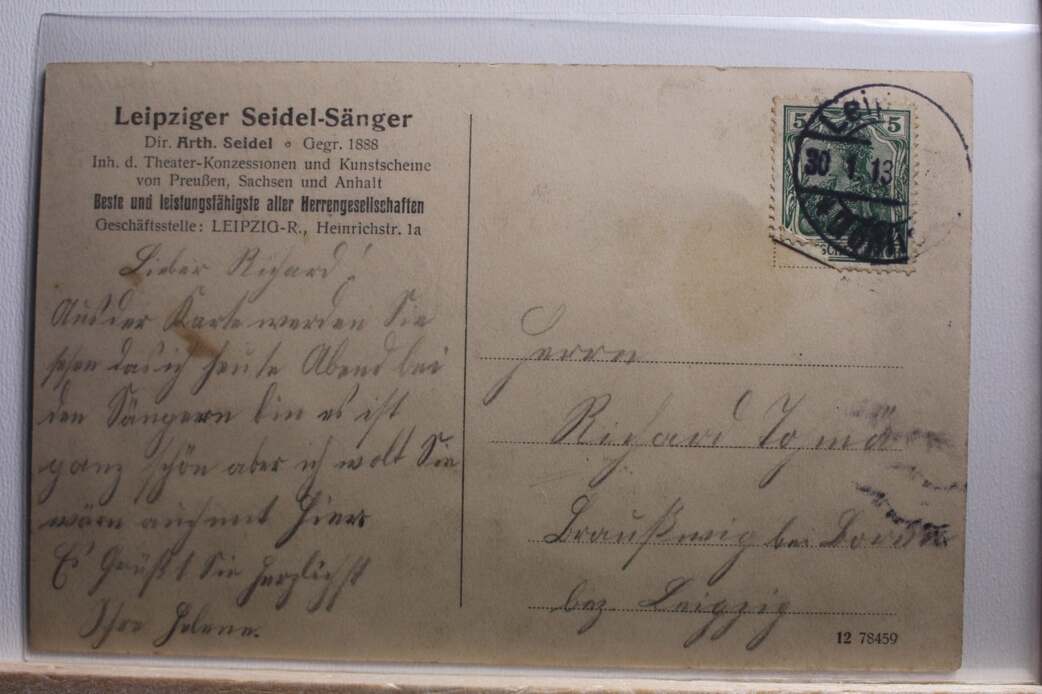 Leipziger Seidel-Sänger
Dir. Arth. Seidel ∘ Gegr. 1888
Inh. d. Theater-Konzessionen und Kunstscheine
von Preußen, Sachsen und Anhalt
Beste und leistungsfähigste aller Herrengesellschaften
Geschäftsstelle: LEIPZIG-R., Heinrichstr. 1a
Lieber Richard!
Aus der Karte werden Sie
sehen das ich heute Abend bei
den Sängern bin es ist
ganz schön aber ich wolt Sie
wärn auch mit hier
Es Grüßt Sie herzlichst
Ihre Helene.
5 5
30 1 13
Herrn
Richard
bei
bez. Leipzig
12 78459